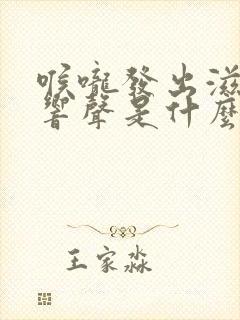 喉嚨發出滋
響聲是什麼
王家淼